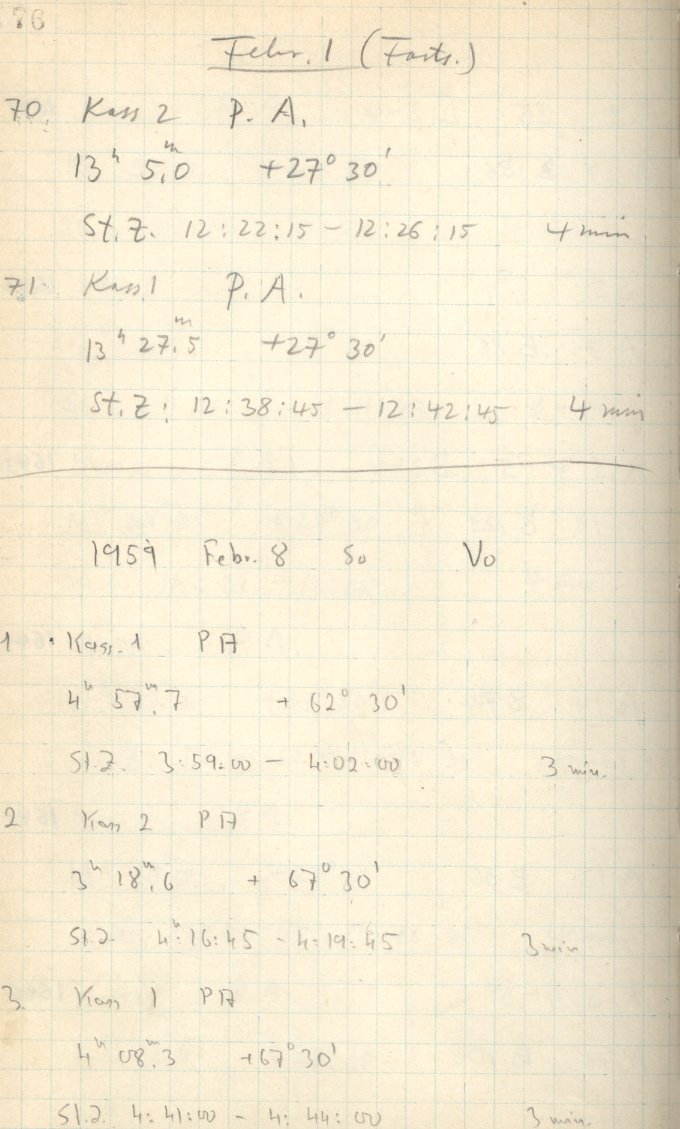 76
Febr. 1 (Forts.)
70. Kass 2 P. A.
13ʰ 5,0ᵐ +27° 30'
St. Z. 12:22:15 – 12:26:15 4 min
71. Kass 1 P. A.
13ʰ 27,5ᵐ +27° 30'
St. Z: 12:38:45 – 12:42:45 4 min
1959 Febr. 8 So Vo
1 Kass. 1 PA
4ʰ 57ᵐ,7 + 62° 30'
St.Z. 3:59:00 – 4:02:00 3 min.
2 Kass 2 PA
3ʰ 18ᵐ,6 + 67° 30'
St.Z. 4ʰ:16:45 – 4:19:45 3 min
3 Kass 1 PA
4ʰ 08ᵐ,3 +67° 30'
St.Z. 4:41:00 – 4:44:00 3 min.